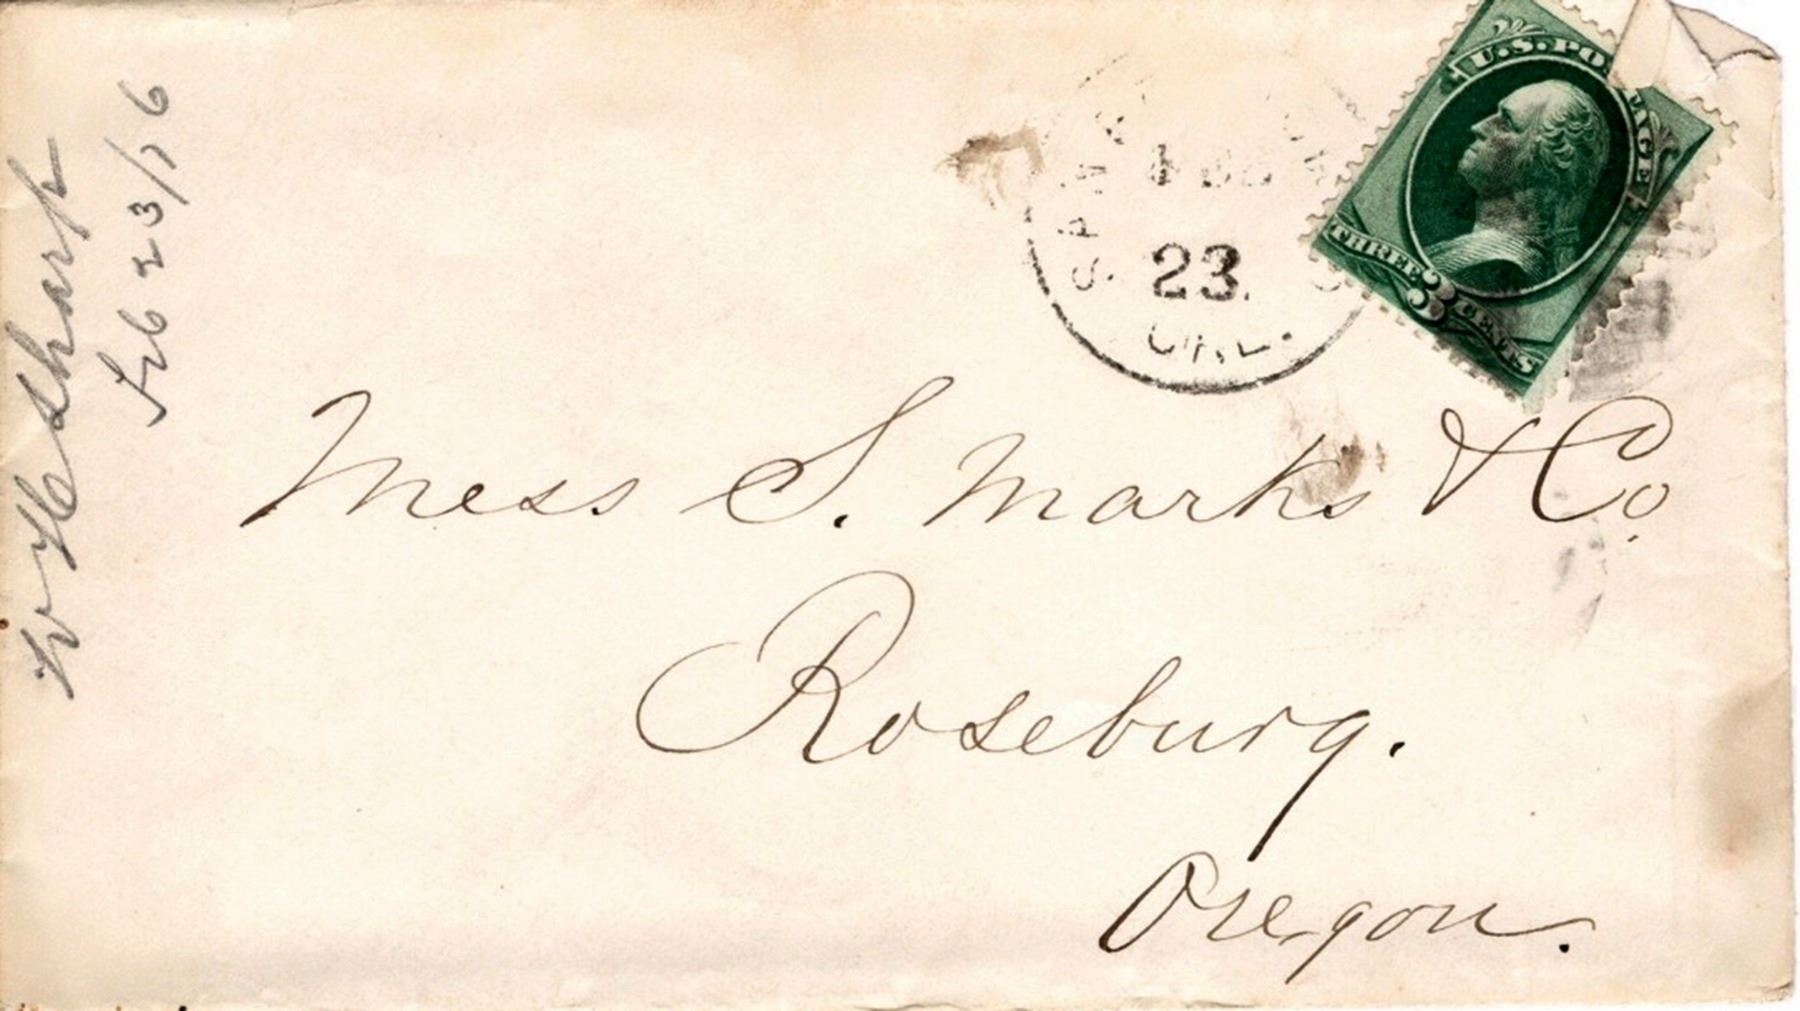 W H Sharp
Feb 23/76
U.S. POSTAGE
THREE 3 CENTS
SAN
FEB
23.
CAL.
Mess S. Marks & Co.
Roseburg.
Oregon.